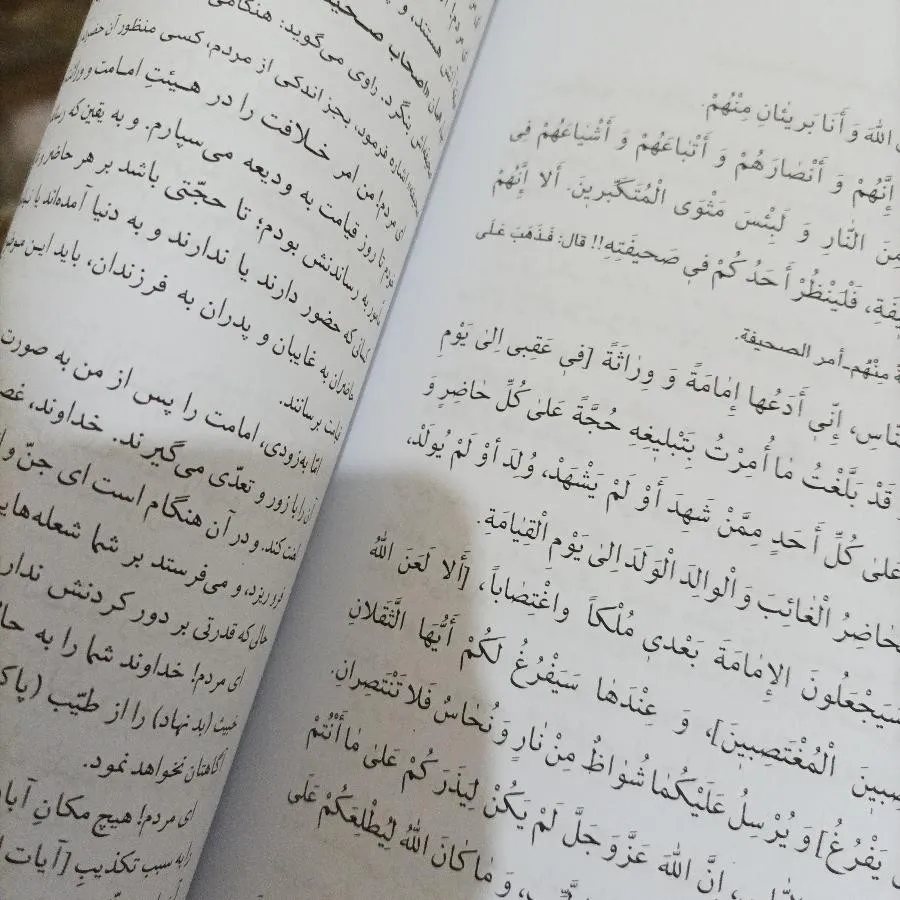 اللهَ وَ أَنَا بَريئٰانِ مِنْهُمْ.
إِنَّهُمْ وَ أَنْصٰارَهُمْ وَ أَتْبٰاعَهُمْ وَ أَشْيٰاعَهُمْ فِي
مِنَ النّٰارِ وَ لَبِئْسَ مَثْوَى الْمُتَكَبِّرينَ. أَلا إِنَّهُمْ
فَلْيَنْظُرْ أَحَدُكُمْ في صَحيفَتِهِ!! قال: فَذَهَبَ عَلَى
مِنْهُم ـ أمر الصحيفة.
إِنّي أَدَعُها إِمٰامَةً وَ وِرٰاثَةً [في عَقِبي إِلىٰ يَوْمِ
قَدْ بَلَّغْتُ مٰا أُمِرْتُ بِتَبْليغِهِ حُجَّةً عَلىٰ كُلِّ حٰاضِرٍ وَ
عَلىٰ كُلِّ أَحَدٍ مِمَّنْ شَهِدَ أَوْ لَمْ يَشْهَدْ، وُلِدَ أَوْ لَمْ يُولَدْ،
الْغٰائِبَ وَ الْوالِدُ الْوَلَدَ إِلىٰ يَوْمِ الْقِيٰامَةِ.
سَيَجْعَلُونَ الإِمٰامَةَ بَعْدي مُلْكاً واغْتِصٰاباً، [أَلا لَعَنَ اللهُ
الْمُغْتَصِبينَ]، وَ عِنْدَهٰا سَيَفْرُغُ لَكُمْ أَيُّهَا الثَّقَلانِ
يَفْرُغُ] وَ يُرْسِلُ عَلَيْكُمٰا شُوٰاظٌ مِنْ نٰارٍ وَ نُحٰاسٌ فَلا تَنْتَصِرانِ.
إِنَّ اللهَ عَزَّ وَ جَلَّ لَمْ يَكُنْ لِيَذَرَكُمْ عَلىٰ مٰا أَنْتُمْ
وَ مٰا كٰانَ اللهُ لِيُطْلِعَكُمْ عَلَى
اصحاب
بنگرد. راوی می‌گوید: هنگامی
اشاره فرمود، بجز اندکی از مردم، کسی منظور آن
ای مردم! من امر خلافت را در هیئتِ امامت و
تا روز قیامت به ودیعه می‌سپارم. و به یقین که
به رساندنش بودم؛ تا حجّتی باشد بر هر حاضر و
کسانی که حضور دارند یا ندارند و به دنیا آمده‌اند یا
حاضران به غایبان و پدران به فرزندان، باید این
قیامت برسانند.
امّا به‌زودی، امامت را پس از من به صورت
آن را با زور و تعدّی می‌گیرند. خداوند،
لعنت کند. و در آن هنگام است ای جنّ و
فرو ریزد، و می‌فرستد بر شما شعله‌های
حالی که قدرتی بر دور کردنش
ای مردم! خداوند شما را به
خبیث (بد نهاد) را از طیّب
آگاهتان نخواهد نمود.
ای مردم! هیچ مکانِ
را به سبب تکذیبِ [آیات